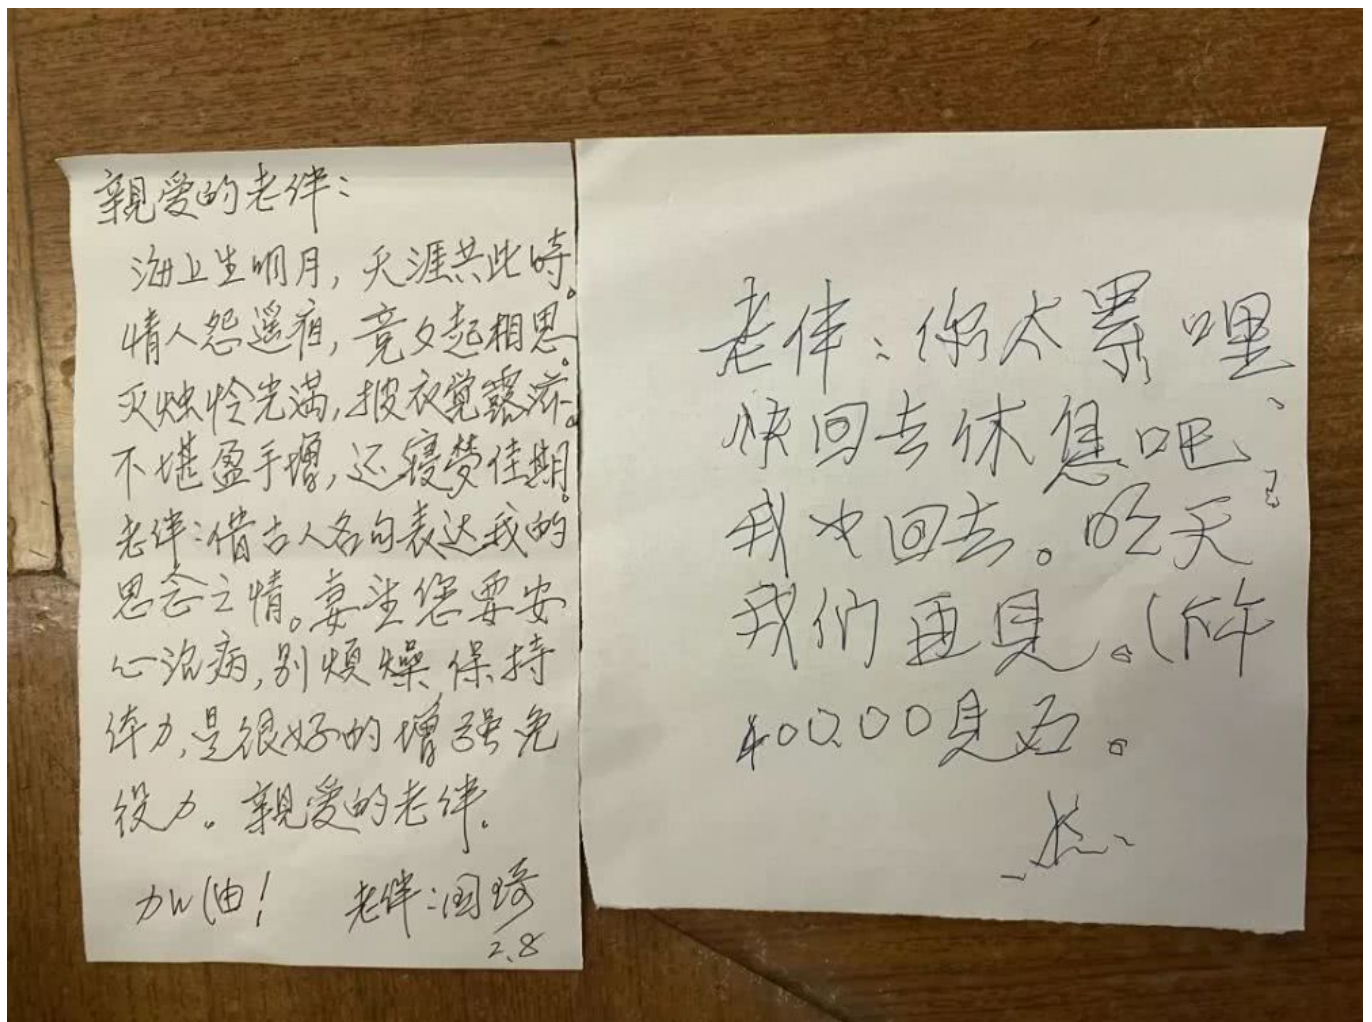 親爱的老伴:
海上生明月, 天涯共此時。
情人怨遥夜, 竟夕起相思。
灭烛怜光满, 披衣覚露滋。
不堪盈手增, 还寝梦佳期。
老伴:借古人名句表达我的
思念之情。妻望您要安
心治病,别煩燥,保持
体力,是很好的增强免
役力。親爱的老伴。
加油!
老伴:国琦
2.8
老伴:你太累哩、
快回去休息吧,
我也回去。明天
我们再見。(下午
400.00見面。